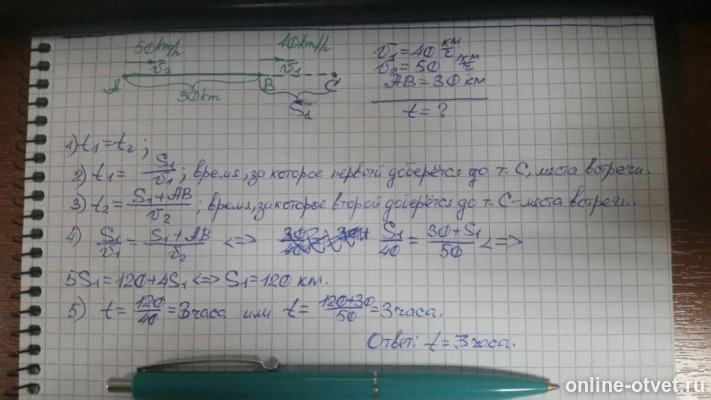 50km/h 40km/h
v₂ v₁
A B C
30km
S₁
v₁=40 км/г
v₂=50 км/г
AB=30 км
t=?
1) t₁=t₂;
2) t₁= S₁/v₁; время, за которое первый доберётся до т. С, места встречи.
3) t₂= S₁+AB/v₂; время, за которое второй доберётся до т. С-места встречи.
4) S₁/v₁ = S₁+AB/v₂ <=> S₁/40 = 30+S₁/50 <=>
5S₁=120+4S₁ <=> S₁=120 км.
5) t= 120/40 =3часа или t= 120+30/50 =3часа.
Ответ: t=3часа.
online-otvet.ru